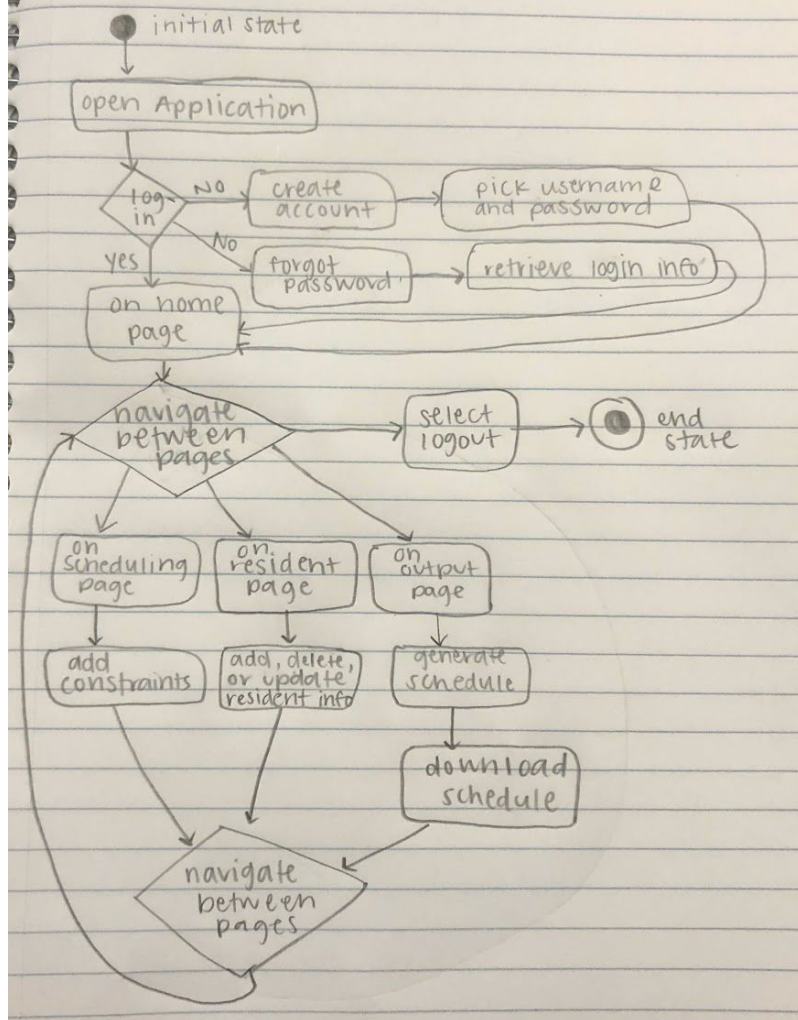 initial state
open Application
log-
in
NO
create
account
pick username
and password
No
yes
forgot
password
retrieve login info
on home
page
navigate
between
pages
select
logout
end
state
on
scheduling
page
on
resident
page
on
output
page
add
constraints
add, delete,
or update
resident info
generate
schedule
download
schedule
navigate
between
pages